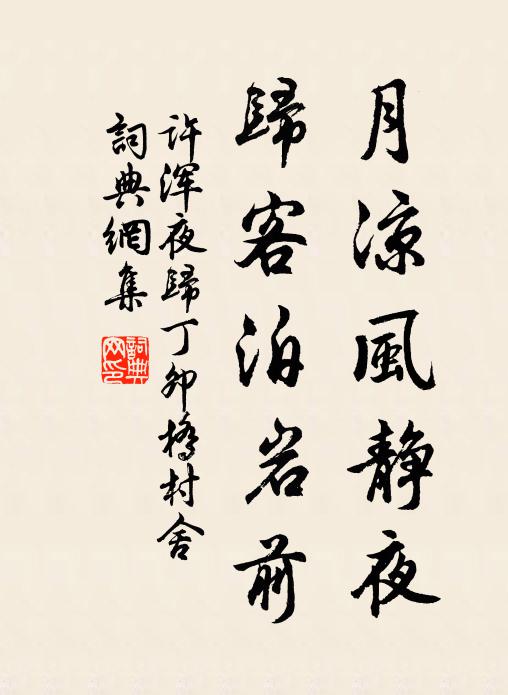 月凉風静夜
歸客泊岩前
许浑夜歸丁卯橋村舍
詞典網集
詞典網印